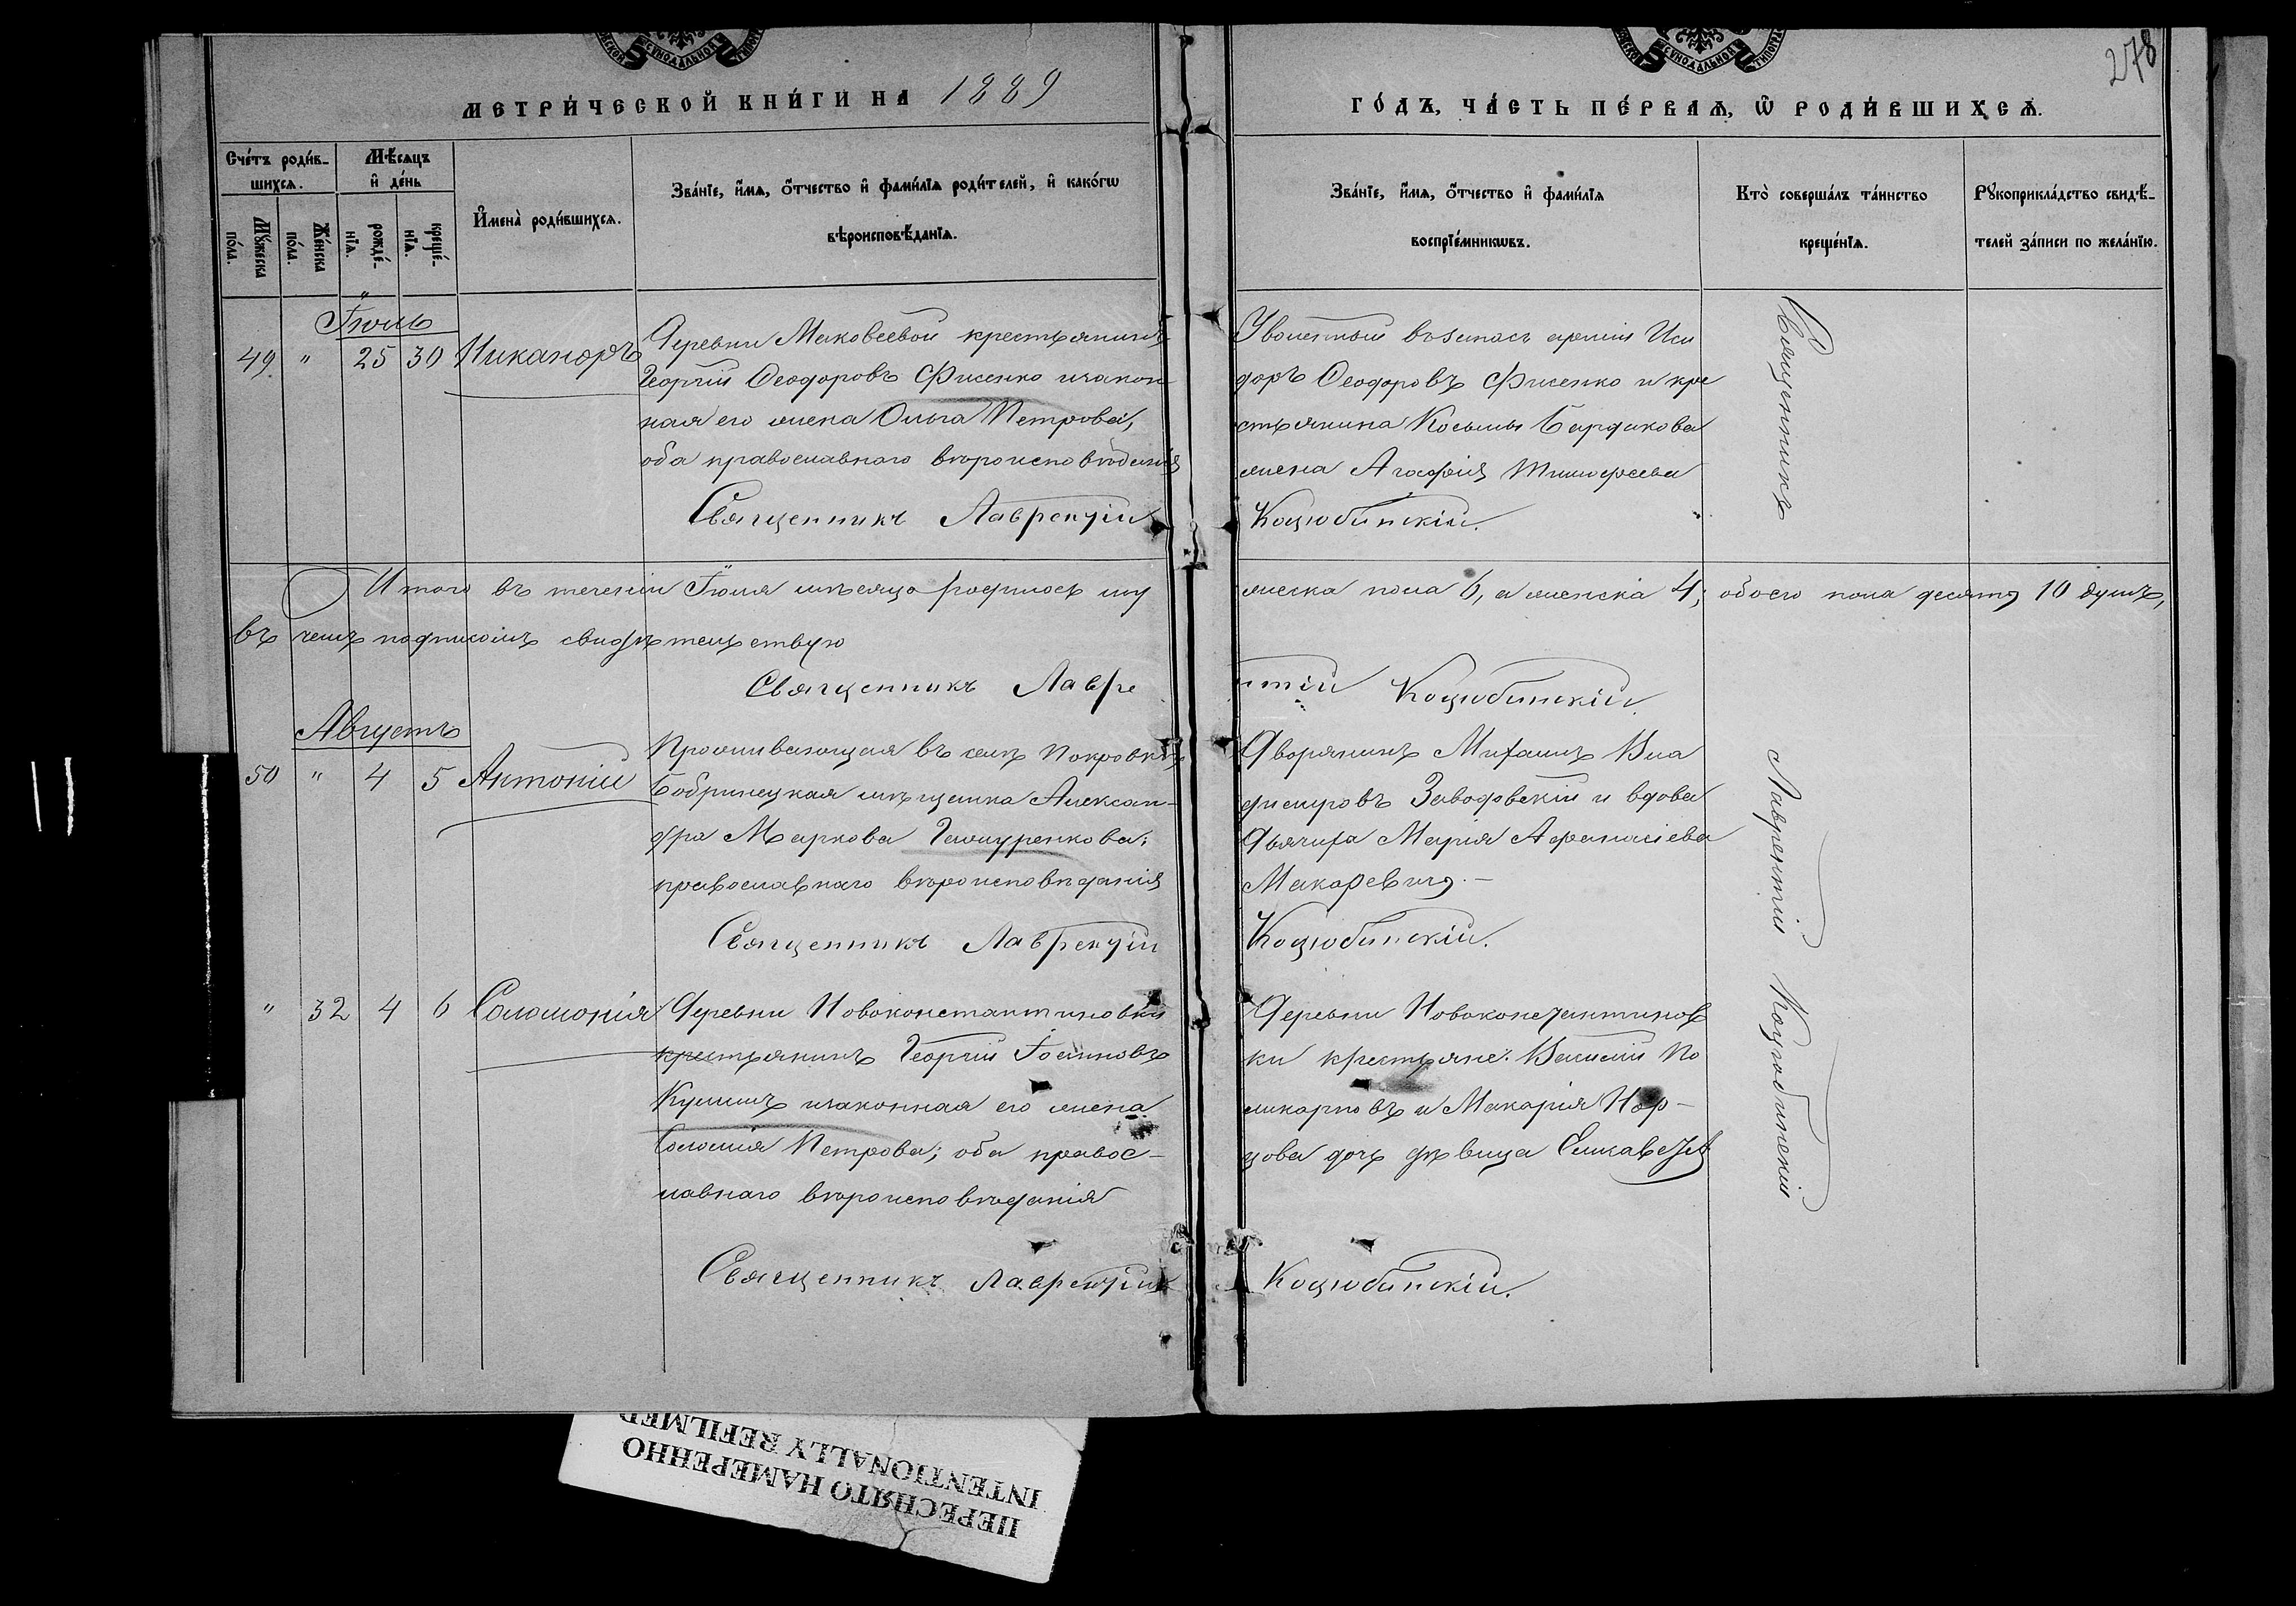 МЕТРИ́ЧЕСКОЙ КНИ́ГИ НА 1889
ГО́ДЪ, ЧА́СТЬ ПЕ́РВАѦ, Ѿ РОДИ́ВШИХСѦ.
278
Сче́тъ роди́вшихсѧ.
Мѣ́сѧцъ и҆ де́нь
Мꙋ́жеска по́ла.
Же́нска по́ла.
рожде́нїѧ.
креще́нїѧ.
И҆мена̀ роди́вшихсѧ.
Зва́нїе, и҆́мѧ, ѻ҆́тчество и҆ фами́лїѧ роди́телей, и҆ како́гѡ
вѣроисповѣ́данїѧ.
Зва́нїе, и҆́мѧ, ѻ҆́тчество и҆ фами́лїѧ
воспрїе́мникѡвъ.
Кто̀ соверша́лъ та́инство
креще́нїѧ.
Рꙋкоприкла́дство свидѣ́телей за́писи по жела́нїю.
Іюль
49 " 25 30 Никаноръ
Деревни Маковеевой крестьянинъ
Георгій Ѳеодоровъ Фисенко и закон
ная его жена Ольга Петрова,
оба православнаго вѣроисповѣданія
Священникъ Лаврентій
Уволенный въ запасъ арміи Иси
доръ Ѳеодоровъ Фисенко и кре
стьянина Косьмы Бардикова
жена Агафія Тимофеева
Коцюбинскій.
Итого въ теченіи Іюля мѣсяца родилось му
жеска пола 6, а женска 4; обоего пола десять 10 душъ,
въ чемъ подписомъ свидѣтельствую
Священникъ Лавре
нтій Коцюбинскій.
Августъ
50 " 4 5 Антоній
Проживающая въ селѣ Покровкѣ
Бобринецкая мѣщанка Алексан-
дра Маркова
православнаго вѣроисповѣданія
Священникъ Лаврентій
Дворянинъ Михаилъ Вла
димировъ Заводовскій и вдова
Дьячиха Марія Афанасіева
Макаревичъ.-
Коцюбинскій.
" 32 4 6 Соломонія
Деревни Новоконстантиновки
крестьянинъ Георгій Іоанновъ
Кулишъ и законная его жена
Соломія Петрова; оба правос-
лавнаго вѣроисповѣданія
Священникъ Лаврентій
Деревни Новоконстантинов
ки крестьяне: Василій По
ликарповъ и Макарія
дочь дѣвица Елисавета
Коцюбинскій.
Священникъ
Лаврентій Коцюбинскій
ПЕРЕСНЯТО НАМЕРЕННО
INTENTIONALLY REFILMED